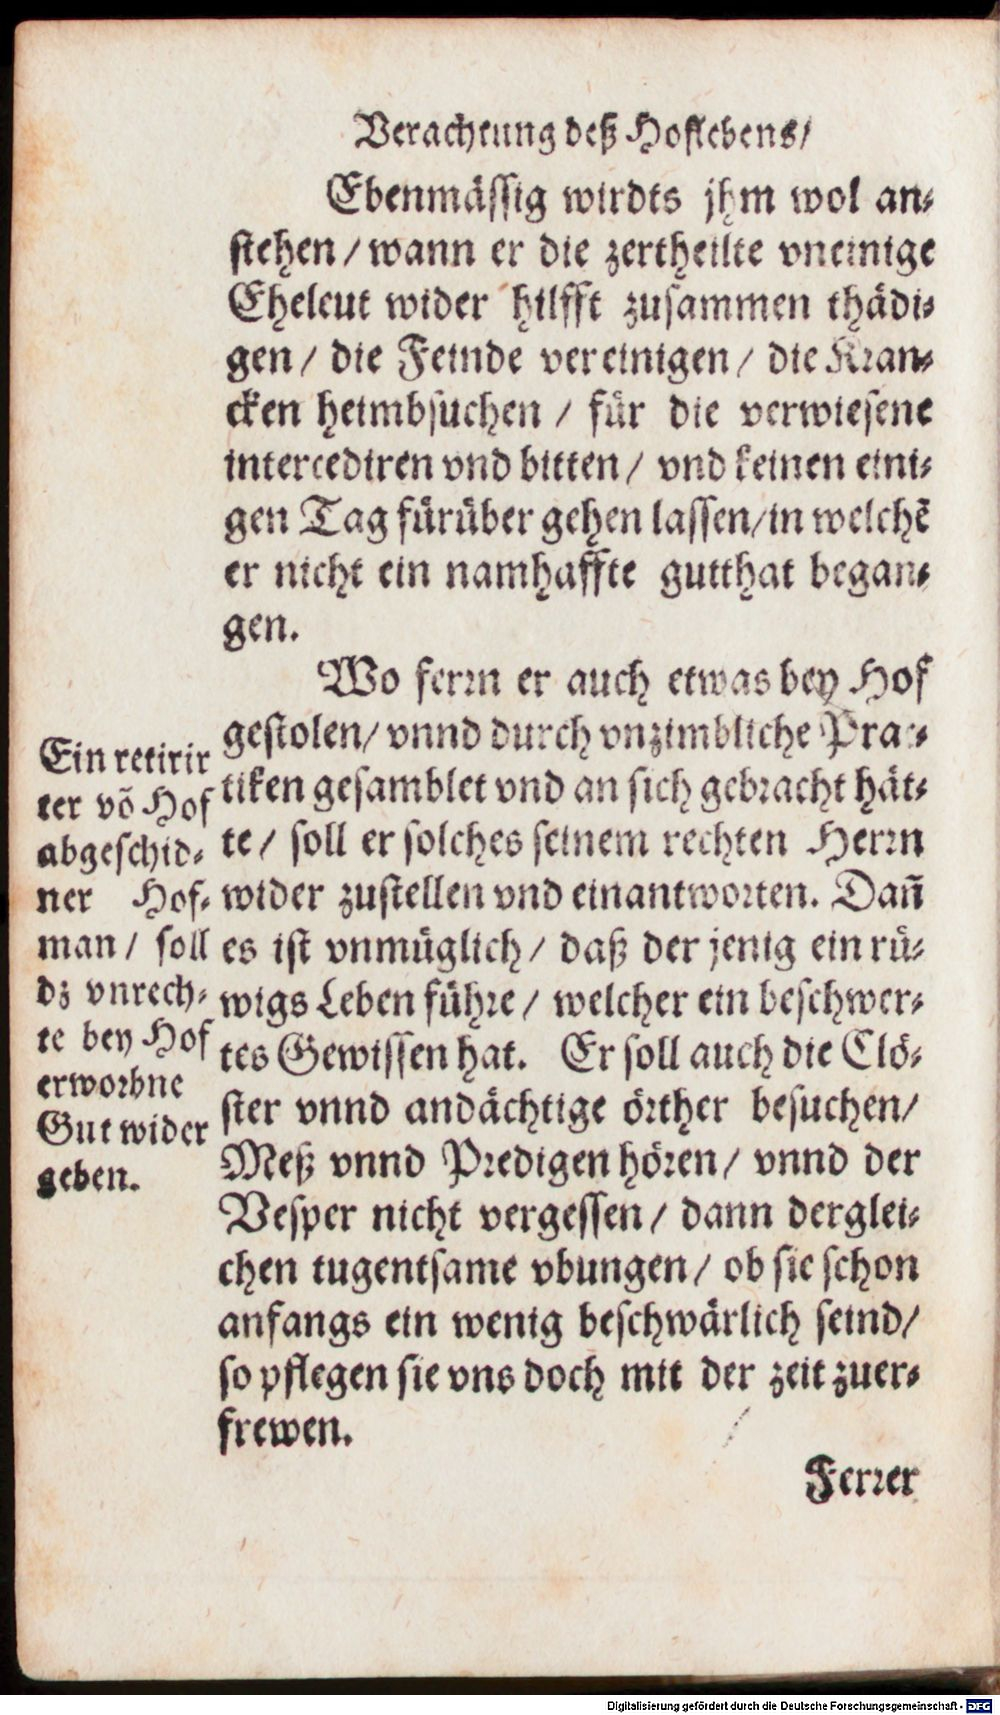 Verachtung deß Hoflebens/
Ebenmässig wirdts jhm wol an-
stehen / wann er die zertheilte vneinige
Eheleut wider hilfft zusammen thädi-
gen / die Feinde vereinigen / die Kran-
cken heimbsuchen / für die verwiesene
intercediren vnd bitten / vnd keinen eini-
gen Tag fürüber gehen lassen/in welchẽ
er nicht ein namhaffte gutthat began-
gen.
Wo ferrn er auch etwas bey Hof
gestolen/ vnnd durch vnzimbliche Prac-
tiken gesamblet vnd an sich gebracht hät-
te / soll er solches seinem rechten Herrn
wider zustellen vnd einantworten. Dañ
es ist vnmüglich / daß der jenig ein rü-
wigs Leben führe / welcher ein beschwer-
tes Gewissen hat. Er soll auch die Clö-
ster vnnd andächtige örther besuchen/
Meß vnnd Predigen hören / vnnd der
Vesper nicht vergessen / dann derglei-
chen tugentsame vbungen / ob sie schon
anfangs ein wenig beschwärlich seind/
so pflegen sie vns doch mit der zeit zuer-
frewen.
Ein retirir
ter võ Hof
abgeschid-
ner Hof-
man / soll
dz vnrech-
te bey Hof
erworbne
Gut wider
geben.
Ferrer
Digitalisierung gefördert durch die Deutsche Forschungsgemeinschaft - DFG